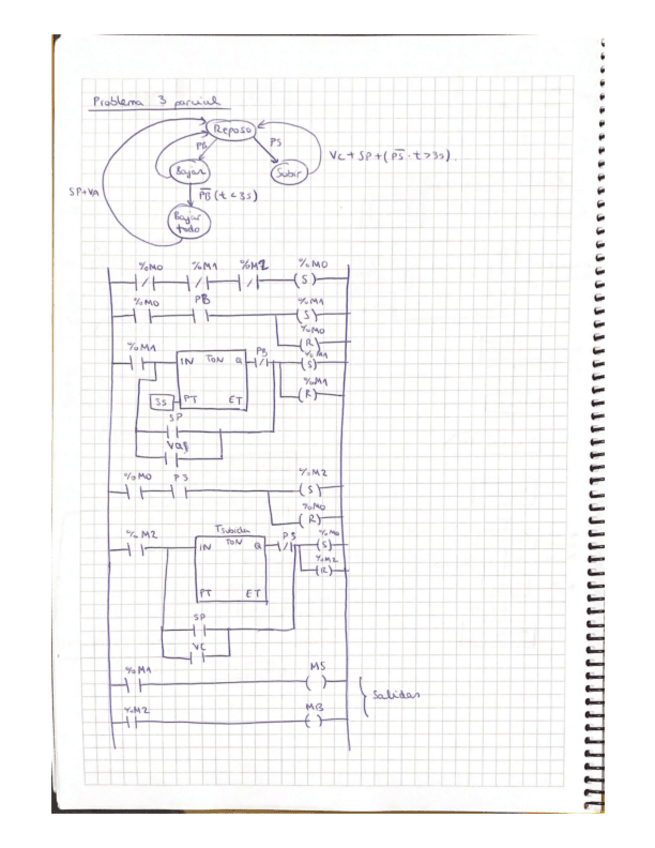 Problema 3 parcial
Reposo
PB PS
Bajar Subir
VC + SP + (PS̅ · t > 3s)
SP+VA
P̅B̅ (t < 3s)
Bajar todo
%M0 %M1 %M2 %M0
(S)
%M0 PB %M1
(S)
%M0
(R)
%M1 IN TON Q PB %M1
(S)
%M1
(R)
3s PT ET
SP
%M0 %M2
(S)
%M0
(R)
Tsubida
%M2 IN TON Q PS %M0
(S)
%M2
(R)
PT ET
SP
VC
%M1 MS
( )
Salidas
%M2 MB
( )